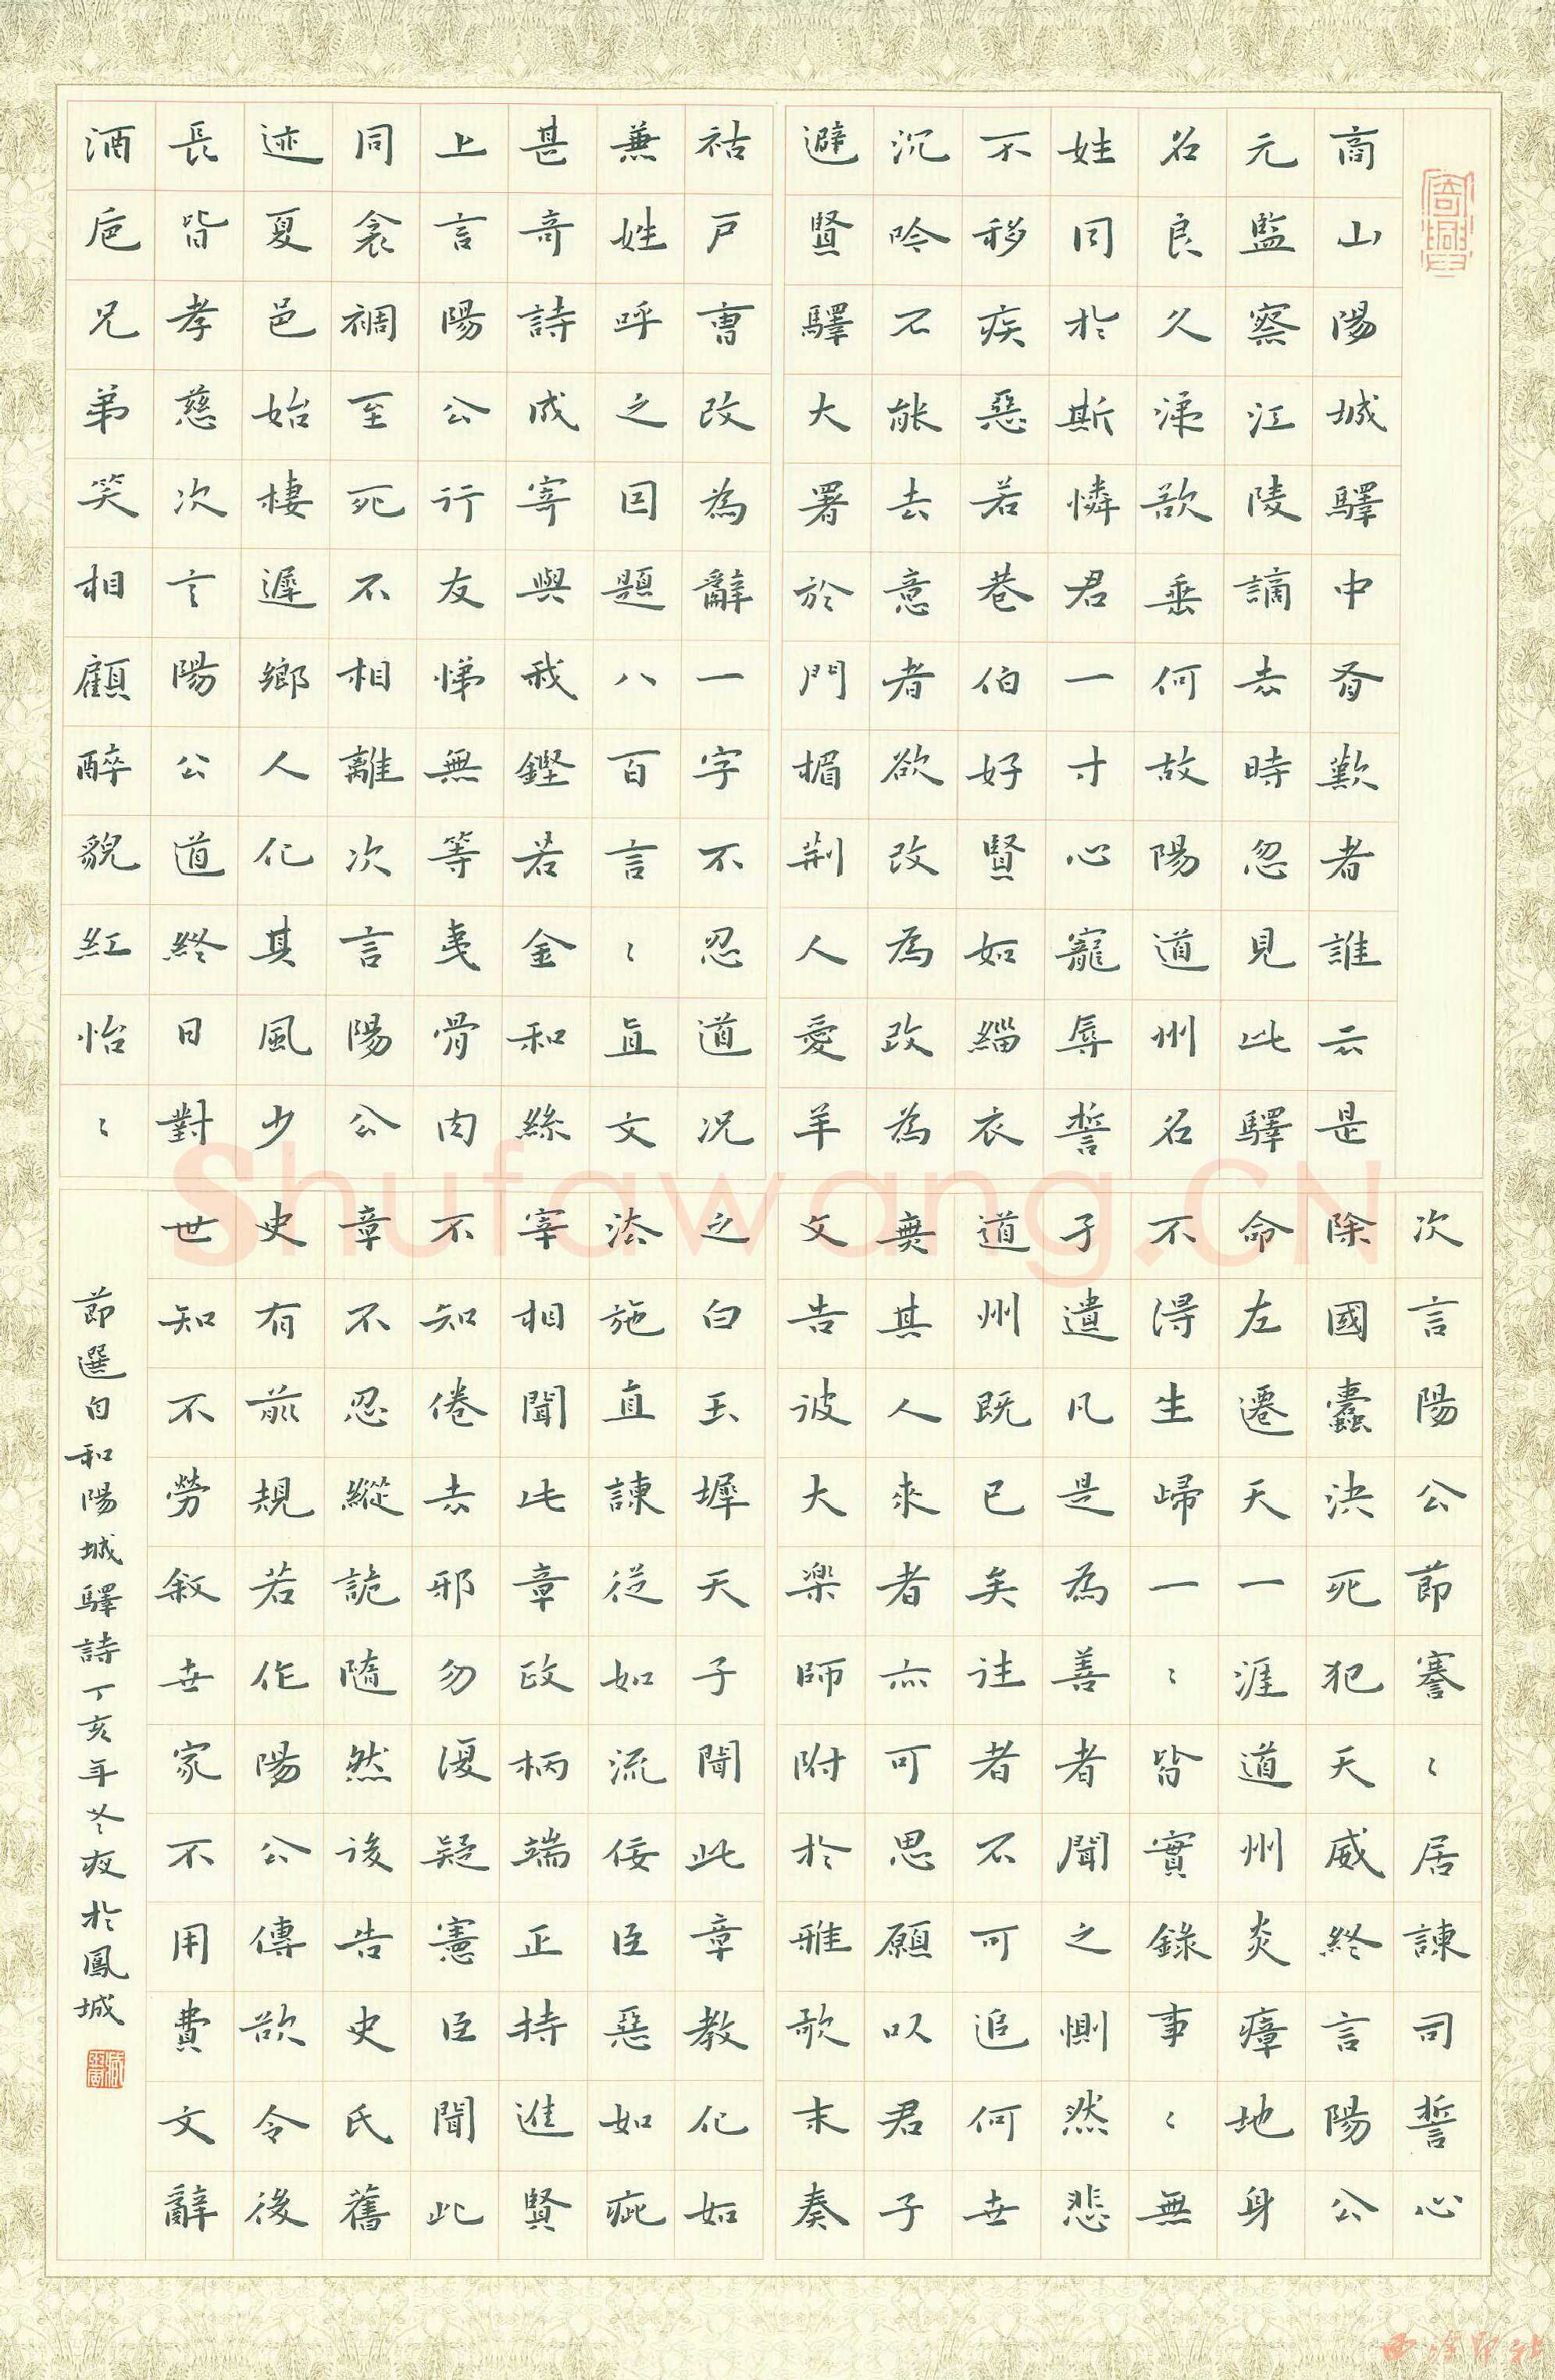 商山陽城驛中有歎者誰云是
元監察江陵謫去時忽見此驛
名良久涕欲垂何故陽道州名
姓同於斯憐君一寸心寵辱誓
不移疾惡若巷伯好賢如緇衣
沉吟不能去意者欲改為改為
避賢驛大署於門楣荊人愛羊
祜戶曹改為辭一字不忍道况
兼姓呼之因題八百言〻直文
甚奇詩成寄與我鏗若金和絲
上言陽公行友悌無等夷骨肉
同衾裯至死不相離次言陽公
迹夏邑始棲遲鄉人化其風少
長皆孝慈次言陽公道終日對
酒卮兄弟笑相顧醉貌紅怡〻
次言陽公節謇〻居諫司誓心
除國蠹決死犯天威終言陽公
命左遷天一涯道州炎瘴地身
不得生歸一〻皆實錄事〻無
孑遺凡是為善者聞之惻然悲
道州既已矣往者不可追何世
無其人來者亦可思願以君子
文告彼大樂師附於雅歌末奏
之白玉墀天子聞此章教化如
法施直諫從如流佞臣惡如疵
宰相聞此章政柄端正持進賢
不知倦去邪勿復疑憲臣聞此
章不忍縱詭隨然後告史氏舊
史有前規若作陽公傳欲令後
世知不勞敘世家不用費文辭
節選白和陽城驛詩丁亥年冬夜於鳳城
Shufawang.CN
西泠印社